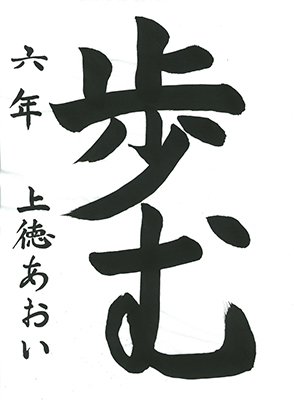 歩む
六年 上徳あおい